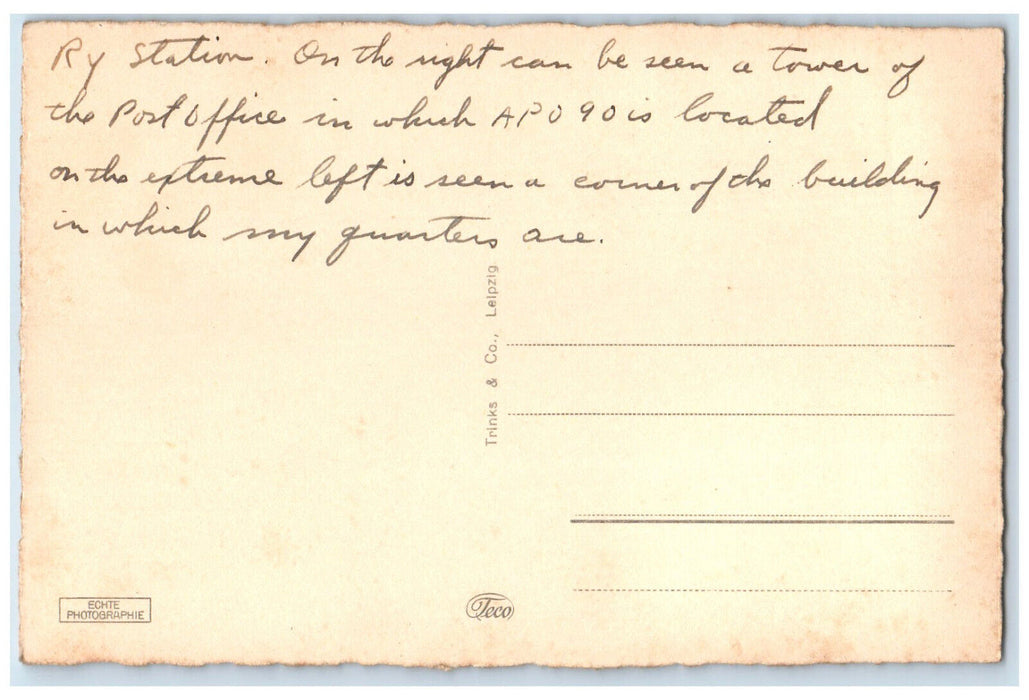 Ry Station. On the right can be seen a tower of
the Post Office in which APO 90 is located
on the extreme left is seen a corner of the building
in which my quarters are.
Trinks & Co., Leipzig
ECHTE
PHOTOGRAPHIE
Teco